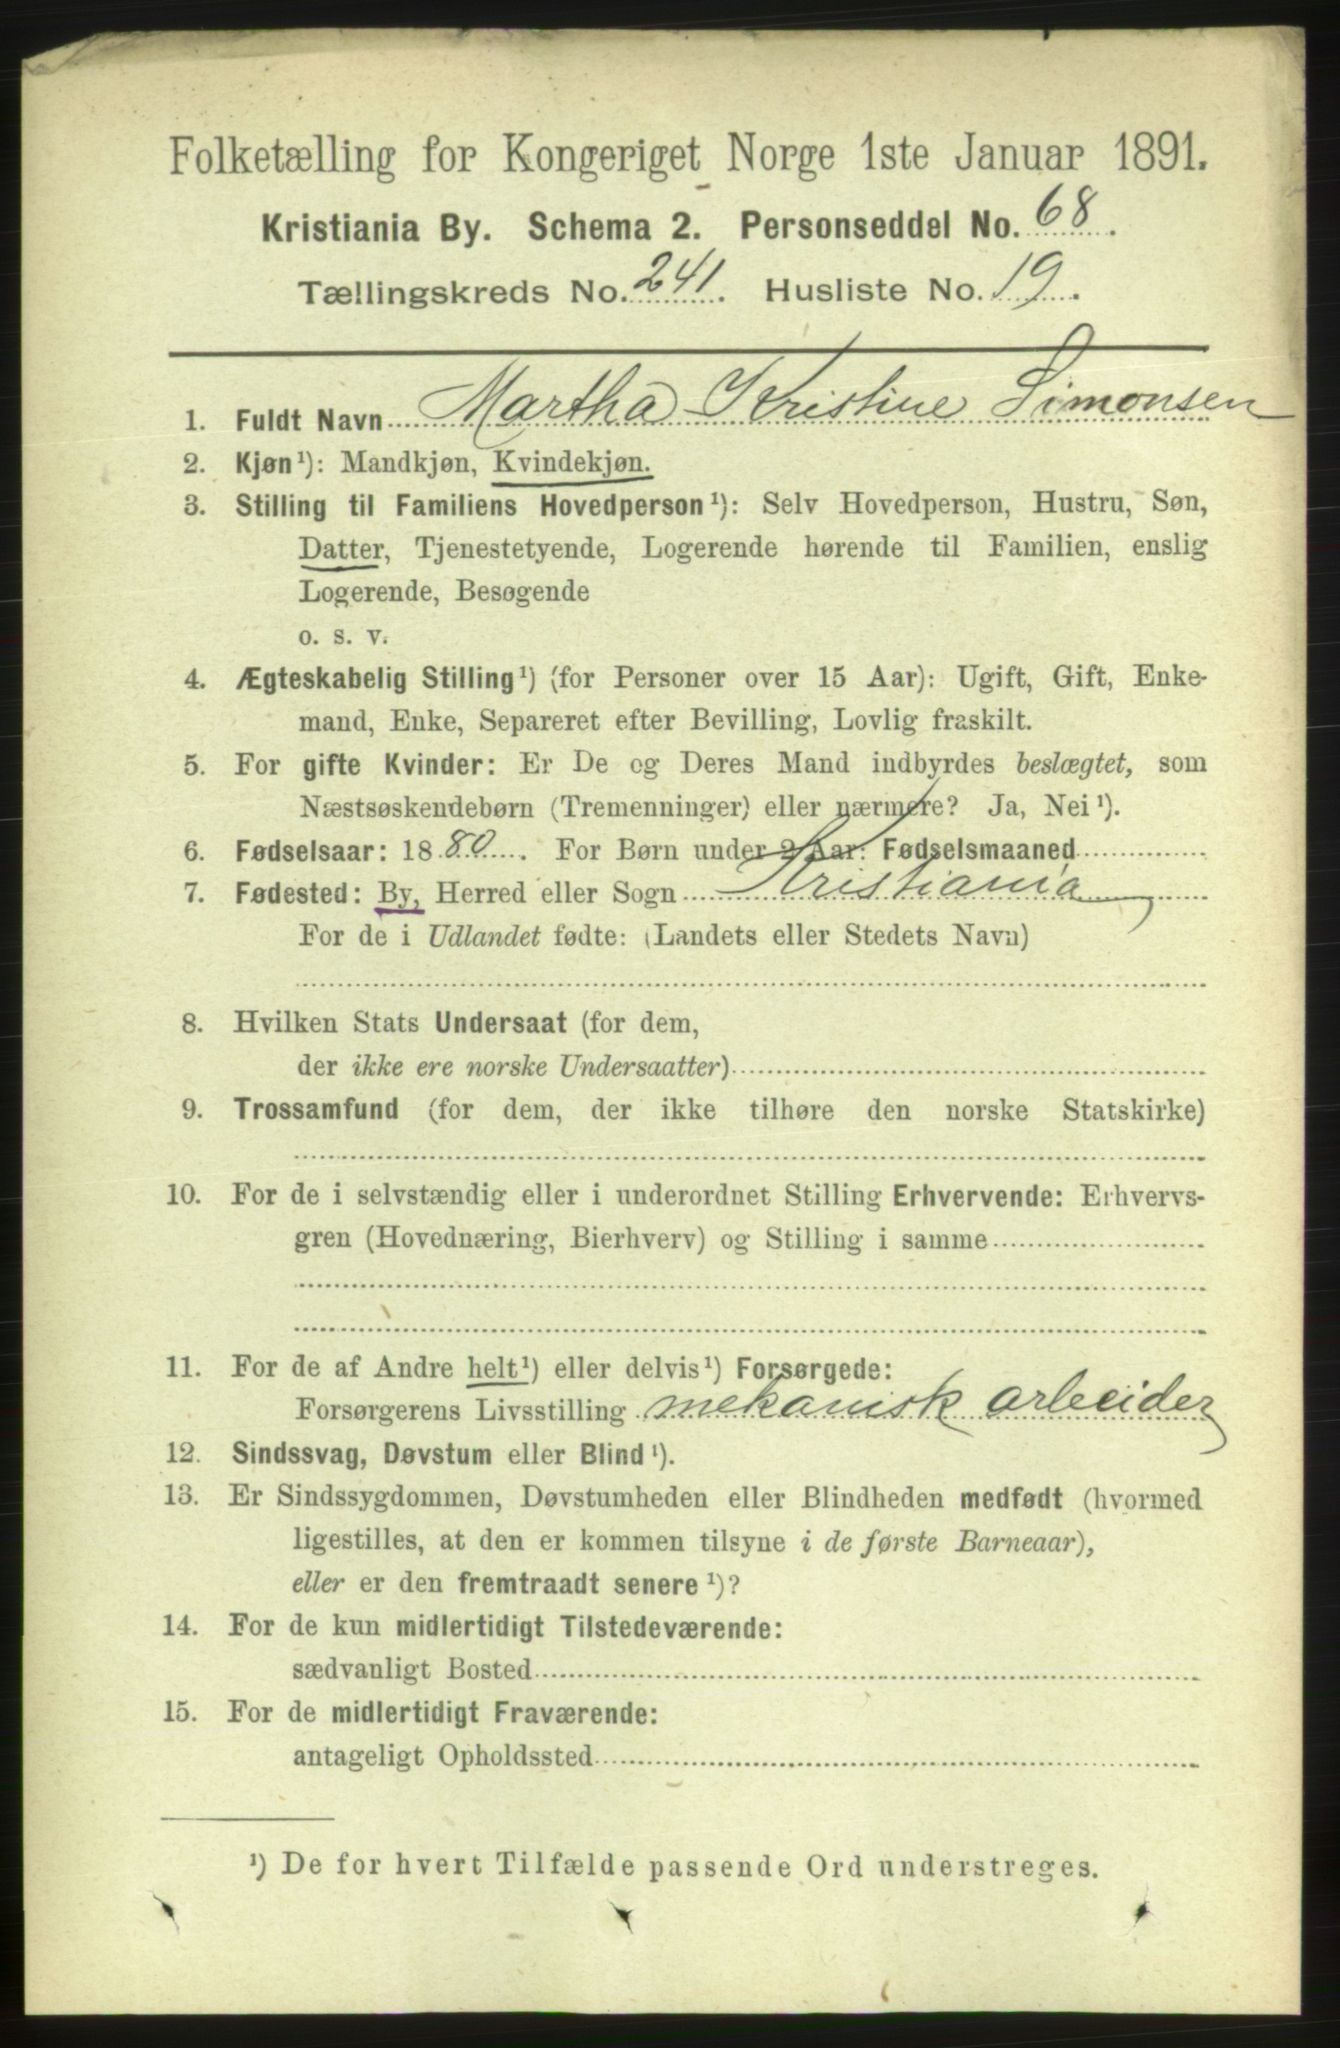 Folketælling for Kongeriget Norge 1ste Januar 1891.
Kristiania By. Schema 2. Personseddel No. 68.
Tællingskreds No. 241. Husliste No. 19.
1. Fuldt Navn Martha Kristine Simonsen
2. Kjøn¹): Mandkjøn, Kvindekjøn.
3. Stilling til Familiens Hovedperson¹): Selv Hovedperson, Hustru, Søn,
Datter, Tjenestetyende, Logerende hørende til Familien, enslig
Logerende, Besøgende
o. s. v.
4. Ægteskabelig Stilling¹) (for Personer over 15 Aar): Ugift, Gift, Enke-
mand, Enke, Separeret efter Bevilling, Lovlig fraskilt.
5. For gifte Kvinder: Er De og Deres Mand indbyrdes beslægtet, som
Næstsøskendebørn (Tremenninger) eller nærmere? Ja, Nei¹).
6. Fødselsaar: 1880. For Børn under 2 Aar: Fødselsmaaned
7. Fødested: By, Herred eller Sogn Kristiania
For de i Udlandet fødte: (Landets eller Stedets Navn)
8. Hvilken Stats Undersaat (for dem,
der ikke ere norske Undersaatter)
9. Trossamfund (for dem, der ikke tilhøre den norske Statskirke)
10. For de i selvstændig eller i underordnet Stilling Erhvervende: Erhvervs-
gren (Hovednæring, Bierhverv) og Stilling i samme
11. For de af Andre helt¹) eller delvis¹) Forsørgede:
Forsørgerens Livsstilling mekanisk arbeider
12. Sindssvag, Døvstum eller Blind¹).
13. Er Sindssygdommen, Døvstumheden eller Blindheden medfødt (hvormed
ligestilles, at den er kommen tilsyne i de første Barneaar),
eller er den fremtraadt senere¹)?
14. For de kun midlertidigt Tilstedeværende:
sædvanligt Bosted
15. For de midlertidigt Fraværende:
antageligt Opholdssted
¹) De for hvert Tilfælde passende Ord understreges.